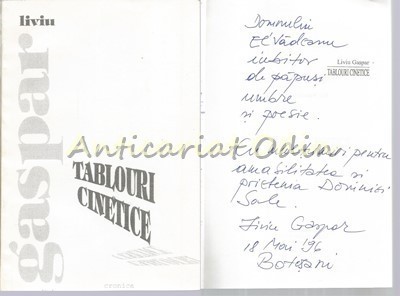 liviu
gaspar
TABLOURI
CINETICE
cronica
Anticariat Odin
Liviu Gaspar
TABLOURI CINETICE
Domnului
Elvădeanu
iubitor
de păpuși
umbre
și poesie.
Cu mulțumiri pentru
amabilitatea și
prietenia Domniei
Sale.
Liviu Gaspar
18 Mai '96
Botoșani